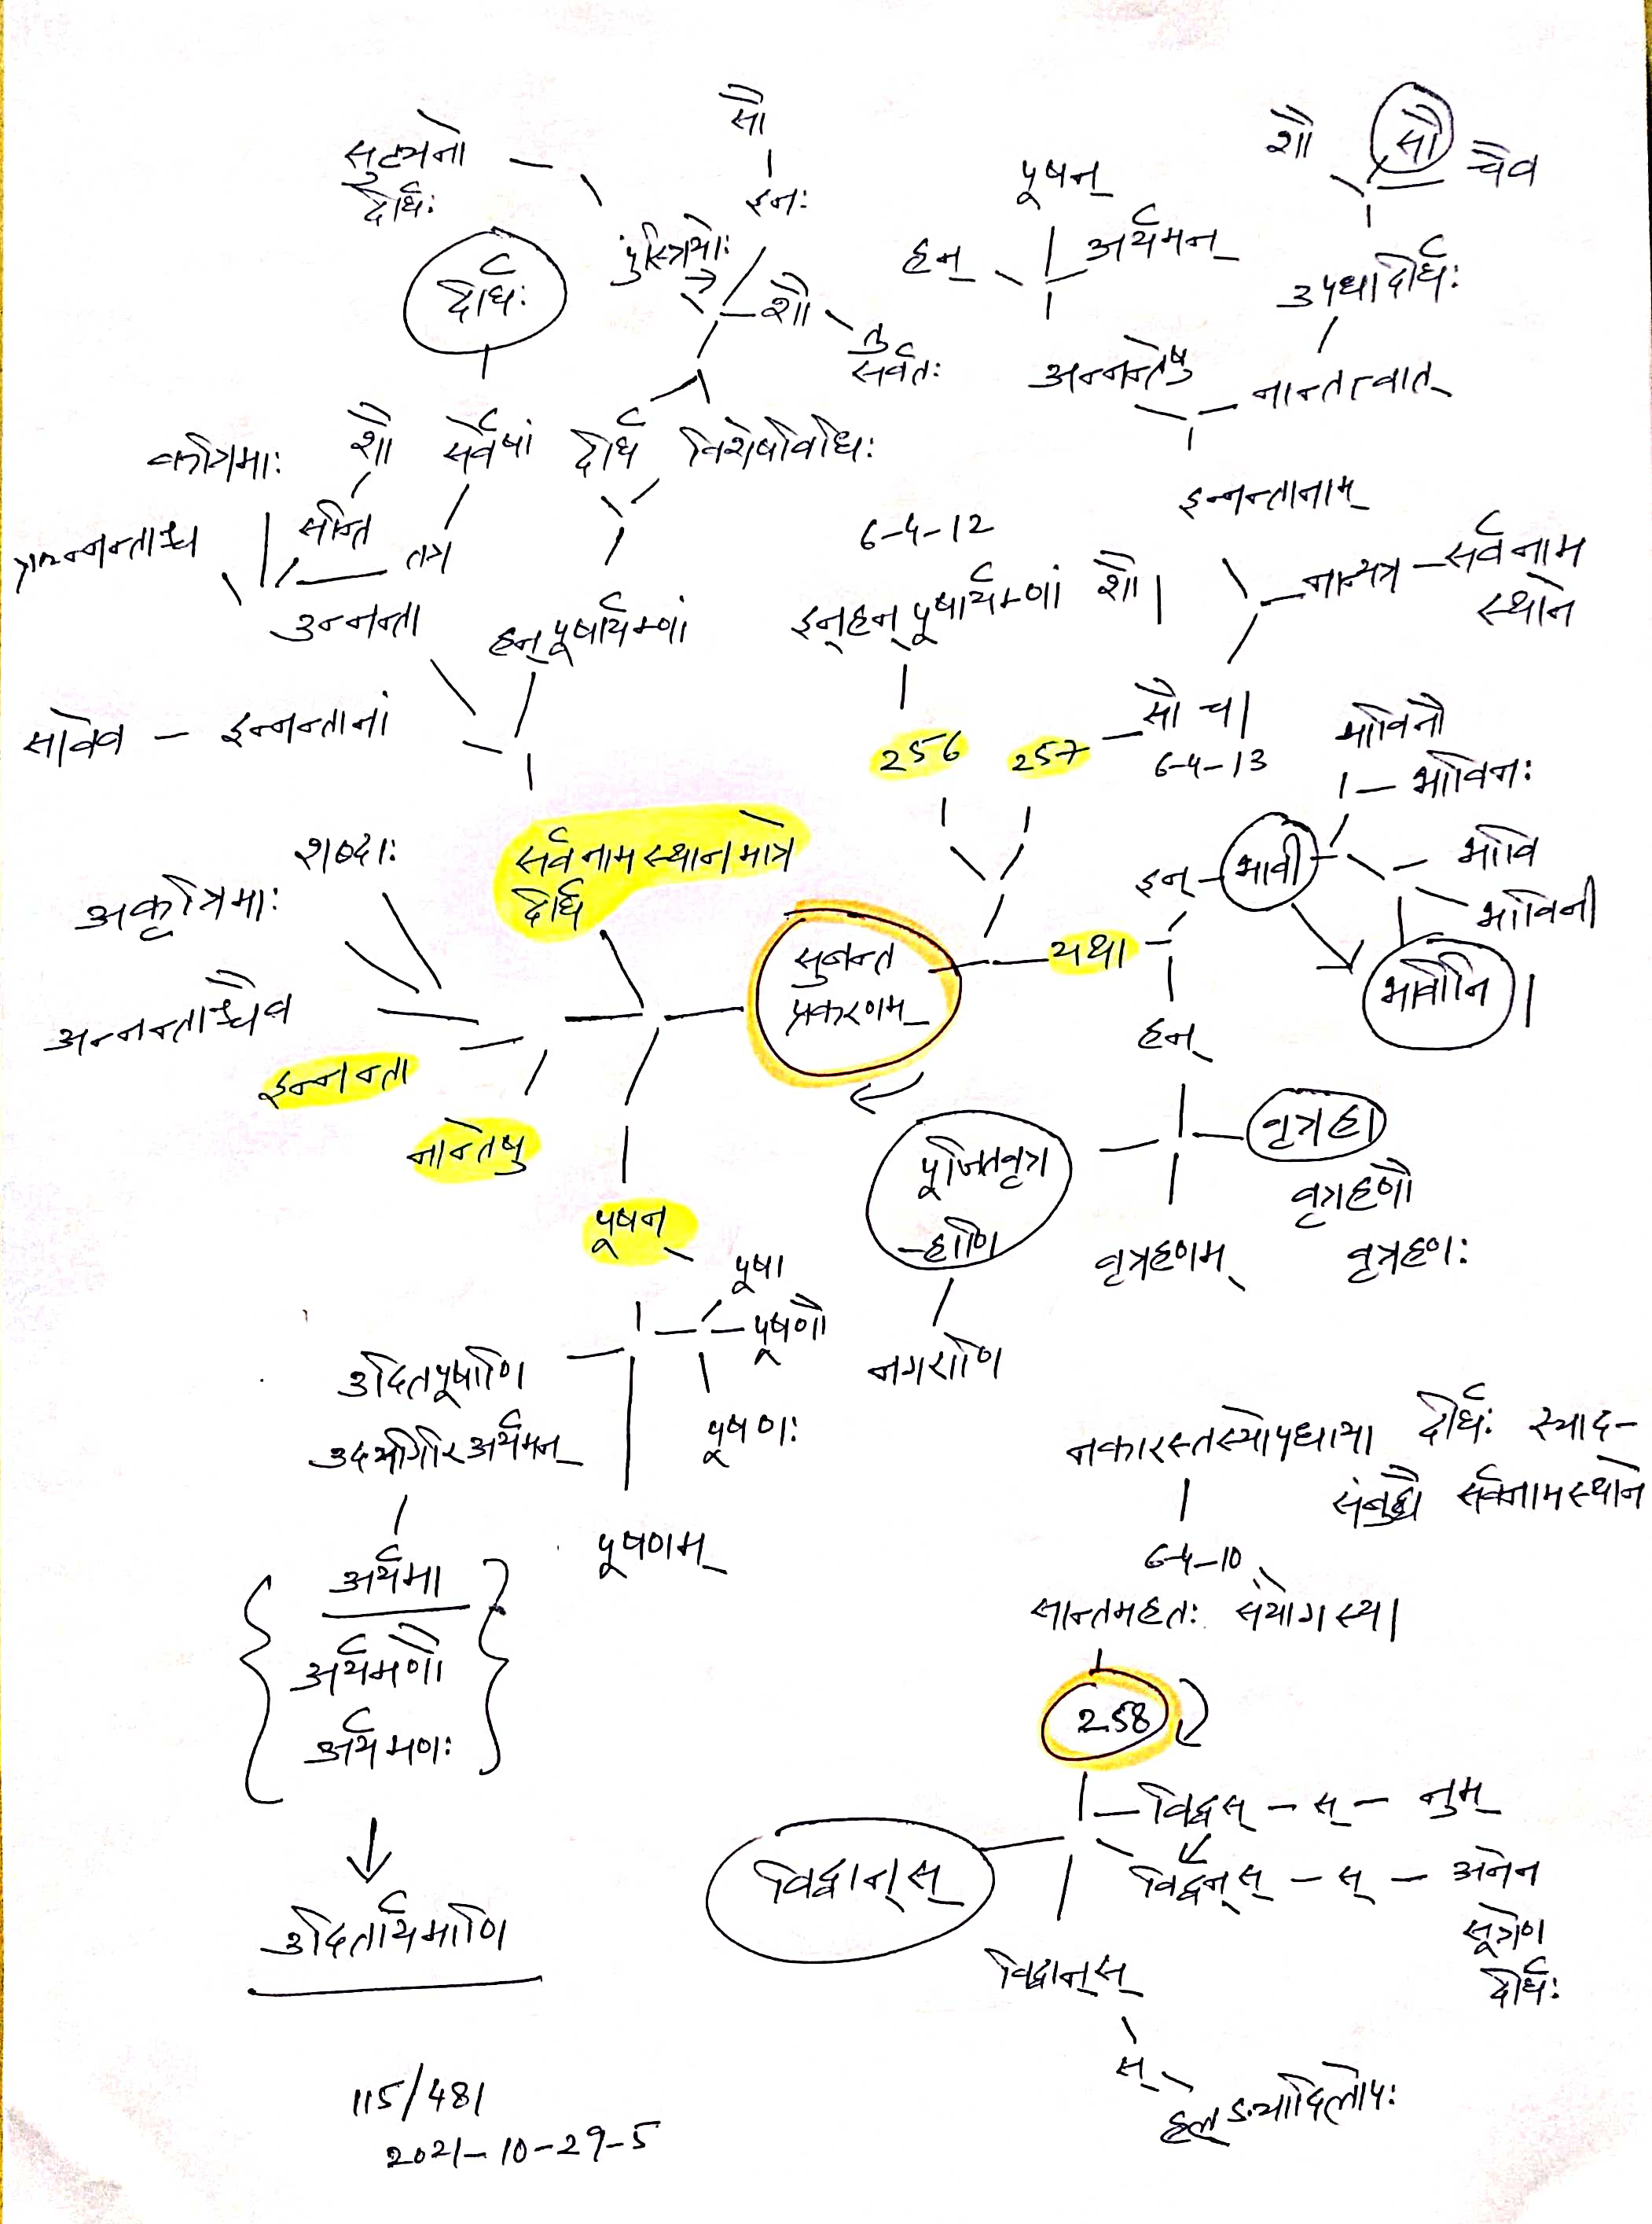 सौ
शौ
सौ
चैव
सुट्यनो
दीर्घः
इनः
पूषन्
दीर्घः
पुंस्त्रियोः
शौ
तु
सर्वतः
हन्
अर्यमन्
उपधादीर्घः
अन्नन्तेषु
नान्तत्वात्
कृत्रिमाः
शौ
सर्वेषां
दीर्घ
विशेषविधिः
सन्ति
तत्र
उन्नन्ता
हन् पूषार्यम्णां
6-4-12
इन्हन् पूषार्यम्णां शौ।
इन्नन्तानाम्
नान्यत्र – सर्वनाम
स्थाने
सावेव – इन्नन्तानां
256
257
सौ च।
6-4-13
भाविनौ
भाविनः
शब्दाः
सर्वनामस्थानमात्रे
दीर्घ
इन्
भावी
भावि
भाविनी
भावीनि।
अकृत्रिमाः
अन्नन्ताश्चैव
इन्नन्ता
नान्तेषु
सुबन्त
प्रकरणम्
यथा
हन्
वृत्रहा
वृत्रहणौ
वृत्रहणः
वृत्रहणम्
पूजितवृत्र
–हाणि
नगराणि
पूषन्
पूषा
पूषणौ
पूषणः
पूषणम्
उदितपूषाणि
उदयगिरि अर्यमन्
अर्यमा
अर्यमणौ
अर्यमणः
उदितार्यमाणि
नकारस्तस्योपधाया दीर्घः स्याद–
संबुद्धौ सर्वनामस्थाने
6-4-10
सान्तमहतः संयोगस्य।
258
विद्वस् – स् – नुम्
विद्वन्स् – स् – अनेन
सूत्रेण
दीर्घः
विद्वान्स्
विद्वान्स्
स्
हल्ङ्यादिलोपः
115/481
2021-10-29-5